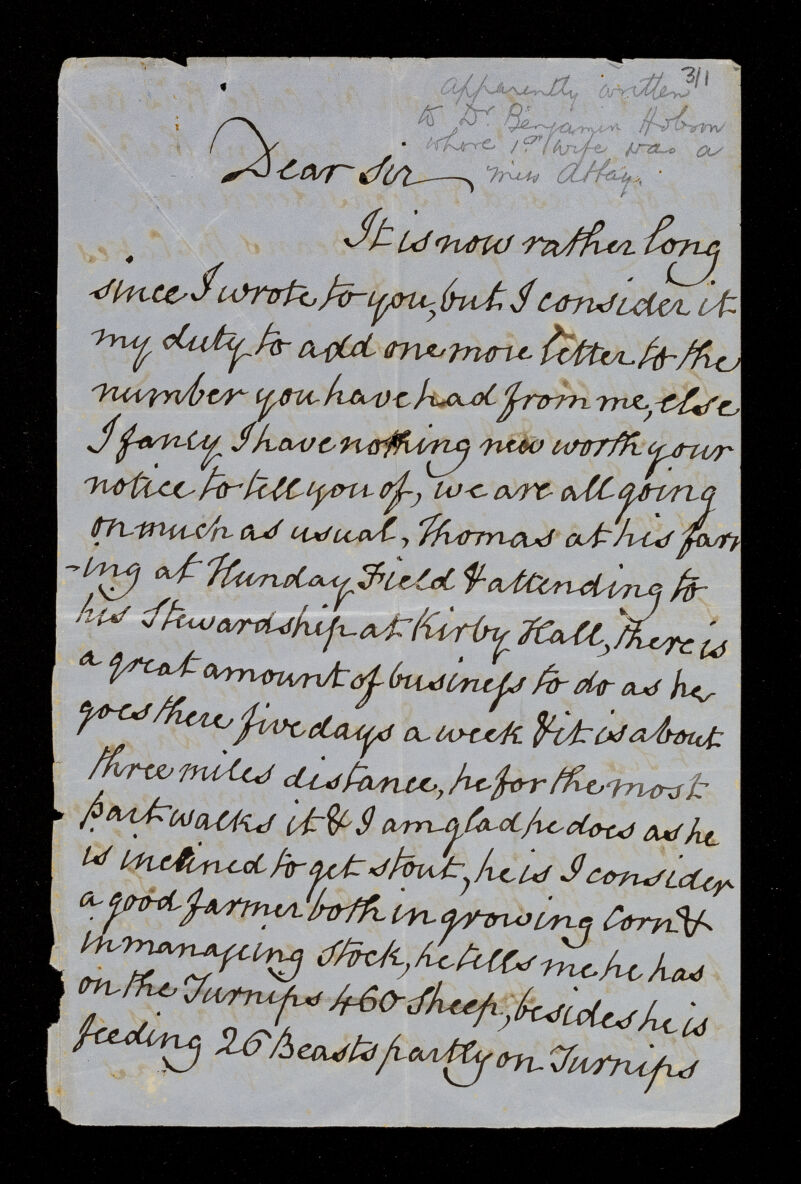 3/1
apparently written
to Dr Benjamin Hobson
whose 1st wife was a
miss Abbay.
Dear Sir
It is now rather long
since I wrote to you, but I consider it
my duty to add one more letter to the
number you have had from me, else
I fancy I have nothing new worth your
notice to tell you of, we are all going
on much as usual, Thomas at his farm
-ing at Hunday Field & attending to
his Stewardship at Kirby Hall, there is
a great amount of business to do as he
goes there five days a week & it is about
three miles distance, he for the most
part walks it & I am glad he does as he
is inclined to get stout, he is I consider
a good farmer both in growing Corn &
in managing Stock, he tells me he has
on the Turnips 460 Sheep, besides he is
feeding 26 Beasts partly on Turnips